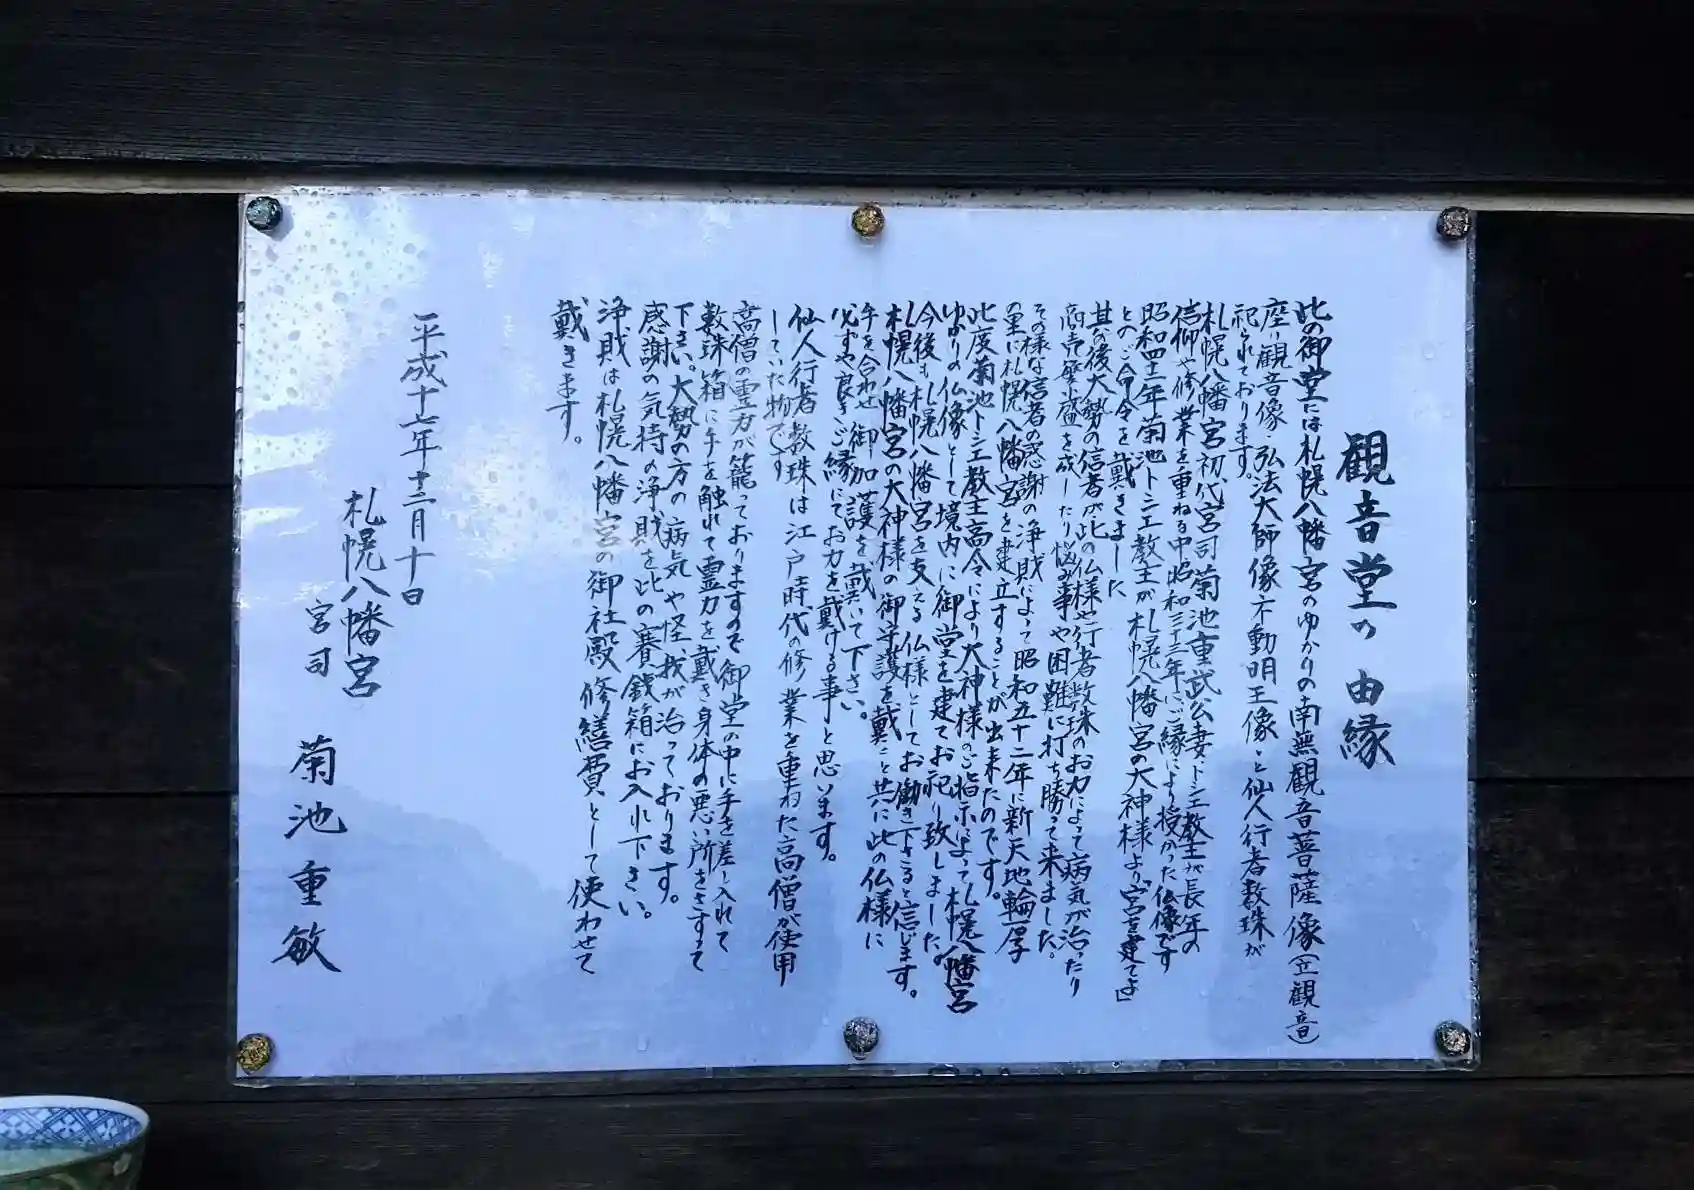 観音堂の由縁
此の御堂には札幌八幡宮のゆかりの南無観音菩薩像(立観音)
座り観音像・弘法大師像・不動明王像・と仙人行者数珠が
祀られております。
札幌八幡宮初代宮司菊池重武公妻・トシエ教主が長年の
信仰や修業を重ねる中昭和三十三年にご縁により授かった仏像です
昭和四十一年菊池トシエ教主が札幌八幡宮の大神様より「宮を建てよ」
とのご命令を戴きました
其の後大勢の信者が此の仏様や行者数珠のお力によって病気が治ったり
商売繁盛を成したり悩み事や困難に打ち勝って来ました。
その様な信者の感謝の浄財によって昭和五十二年に新天地輪厚
の里に札幌八幡宮を建立することが出来たのです。
此度菊池トシエ教主高令により大神様のご指示によって札幌八幡宮
ゆかりの仏像として境内に御堂を建てお祀り致しました。
今後も札幌八幡宮を支える仏様としてお働き下さると信じます。
札幌八幡宮の大神様の御守護を戴くと共に此の仏様に
手を合わせ御加護を戴いて下さい。
必ずや良きご縁にてお力を戴ける事と思います。
仙人行者数珠は江戸時代の修業を重ねた高僧が使用
していた物です
高僧の霊力が籠っておりますので御堂の中に手を差し入れて
数珠箱に手を触れて霊力を戴き身体の悪い所をさすって
下さい。大勢の方の病気や怪我が治っております。
感謝の気持の浄財を此の賽銭箱にお入れ下さい。
浄財は札幌八幡宮の御社殿修繕費として使わせて
戴きます。
平成十七年十二月十日
札幌八幡宮
宮司 菊池重敏